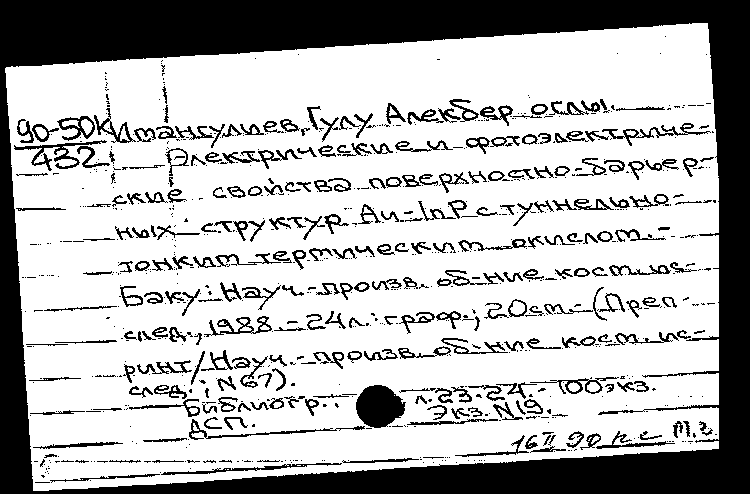 90-50К Имангулиев, Гулу Алекбер оглы.
432 Электрические и фотоэлектриче-
ские свойства поверхностно-барьер-
ных структур Au-InP с туннельно-
тонким термическим окислом. -
Баку: Науч.-произв. об-ние косм. ис-
след., 1988. - 24 л.: граф.; 20 см. - (Преп-
ринт/Науч.-произв. об-ние косм. ис-
след.; N 67).
Библиогр.: л. 23-24. - 100 экз.
ДСП. Экз. N 19.
16 II 90